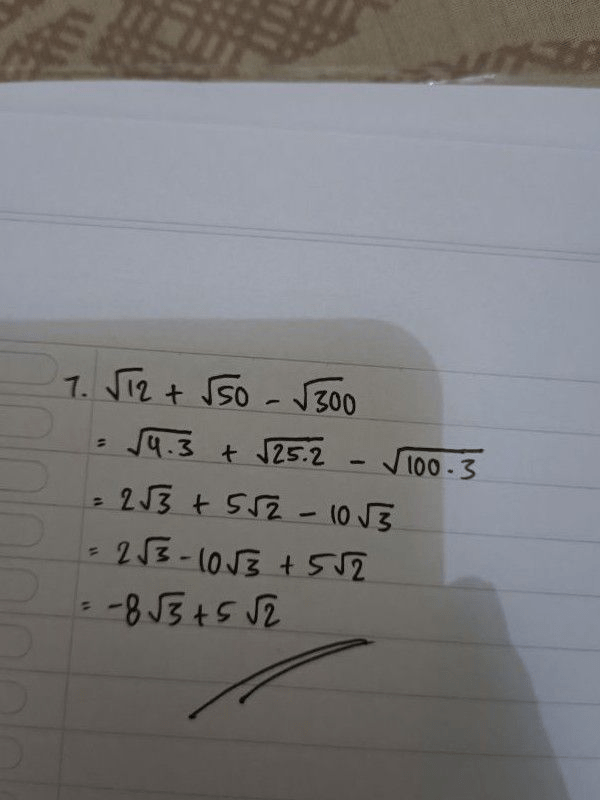 7. √12 + √50 - √300
= √4.3 + √25.2 - √100.3
= 2√3 + 5√2 - 10√3
= 2√3 - 10√3 + 5√2
= -8√3 + 5√2